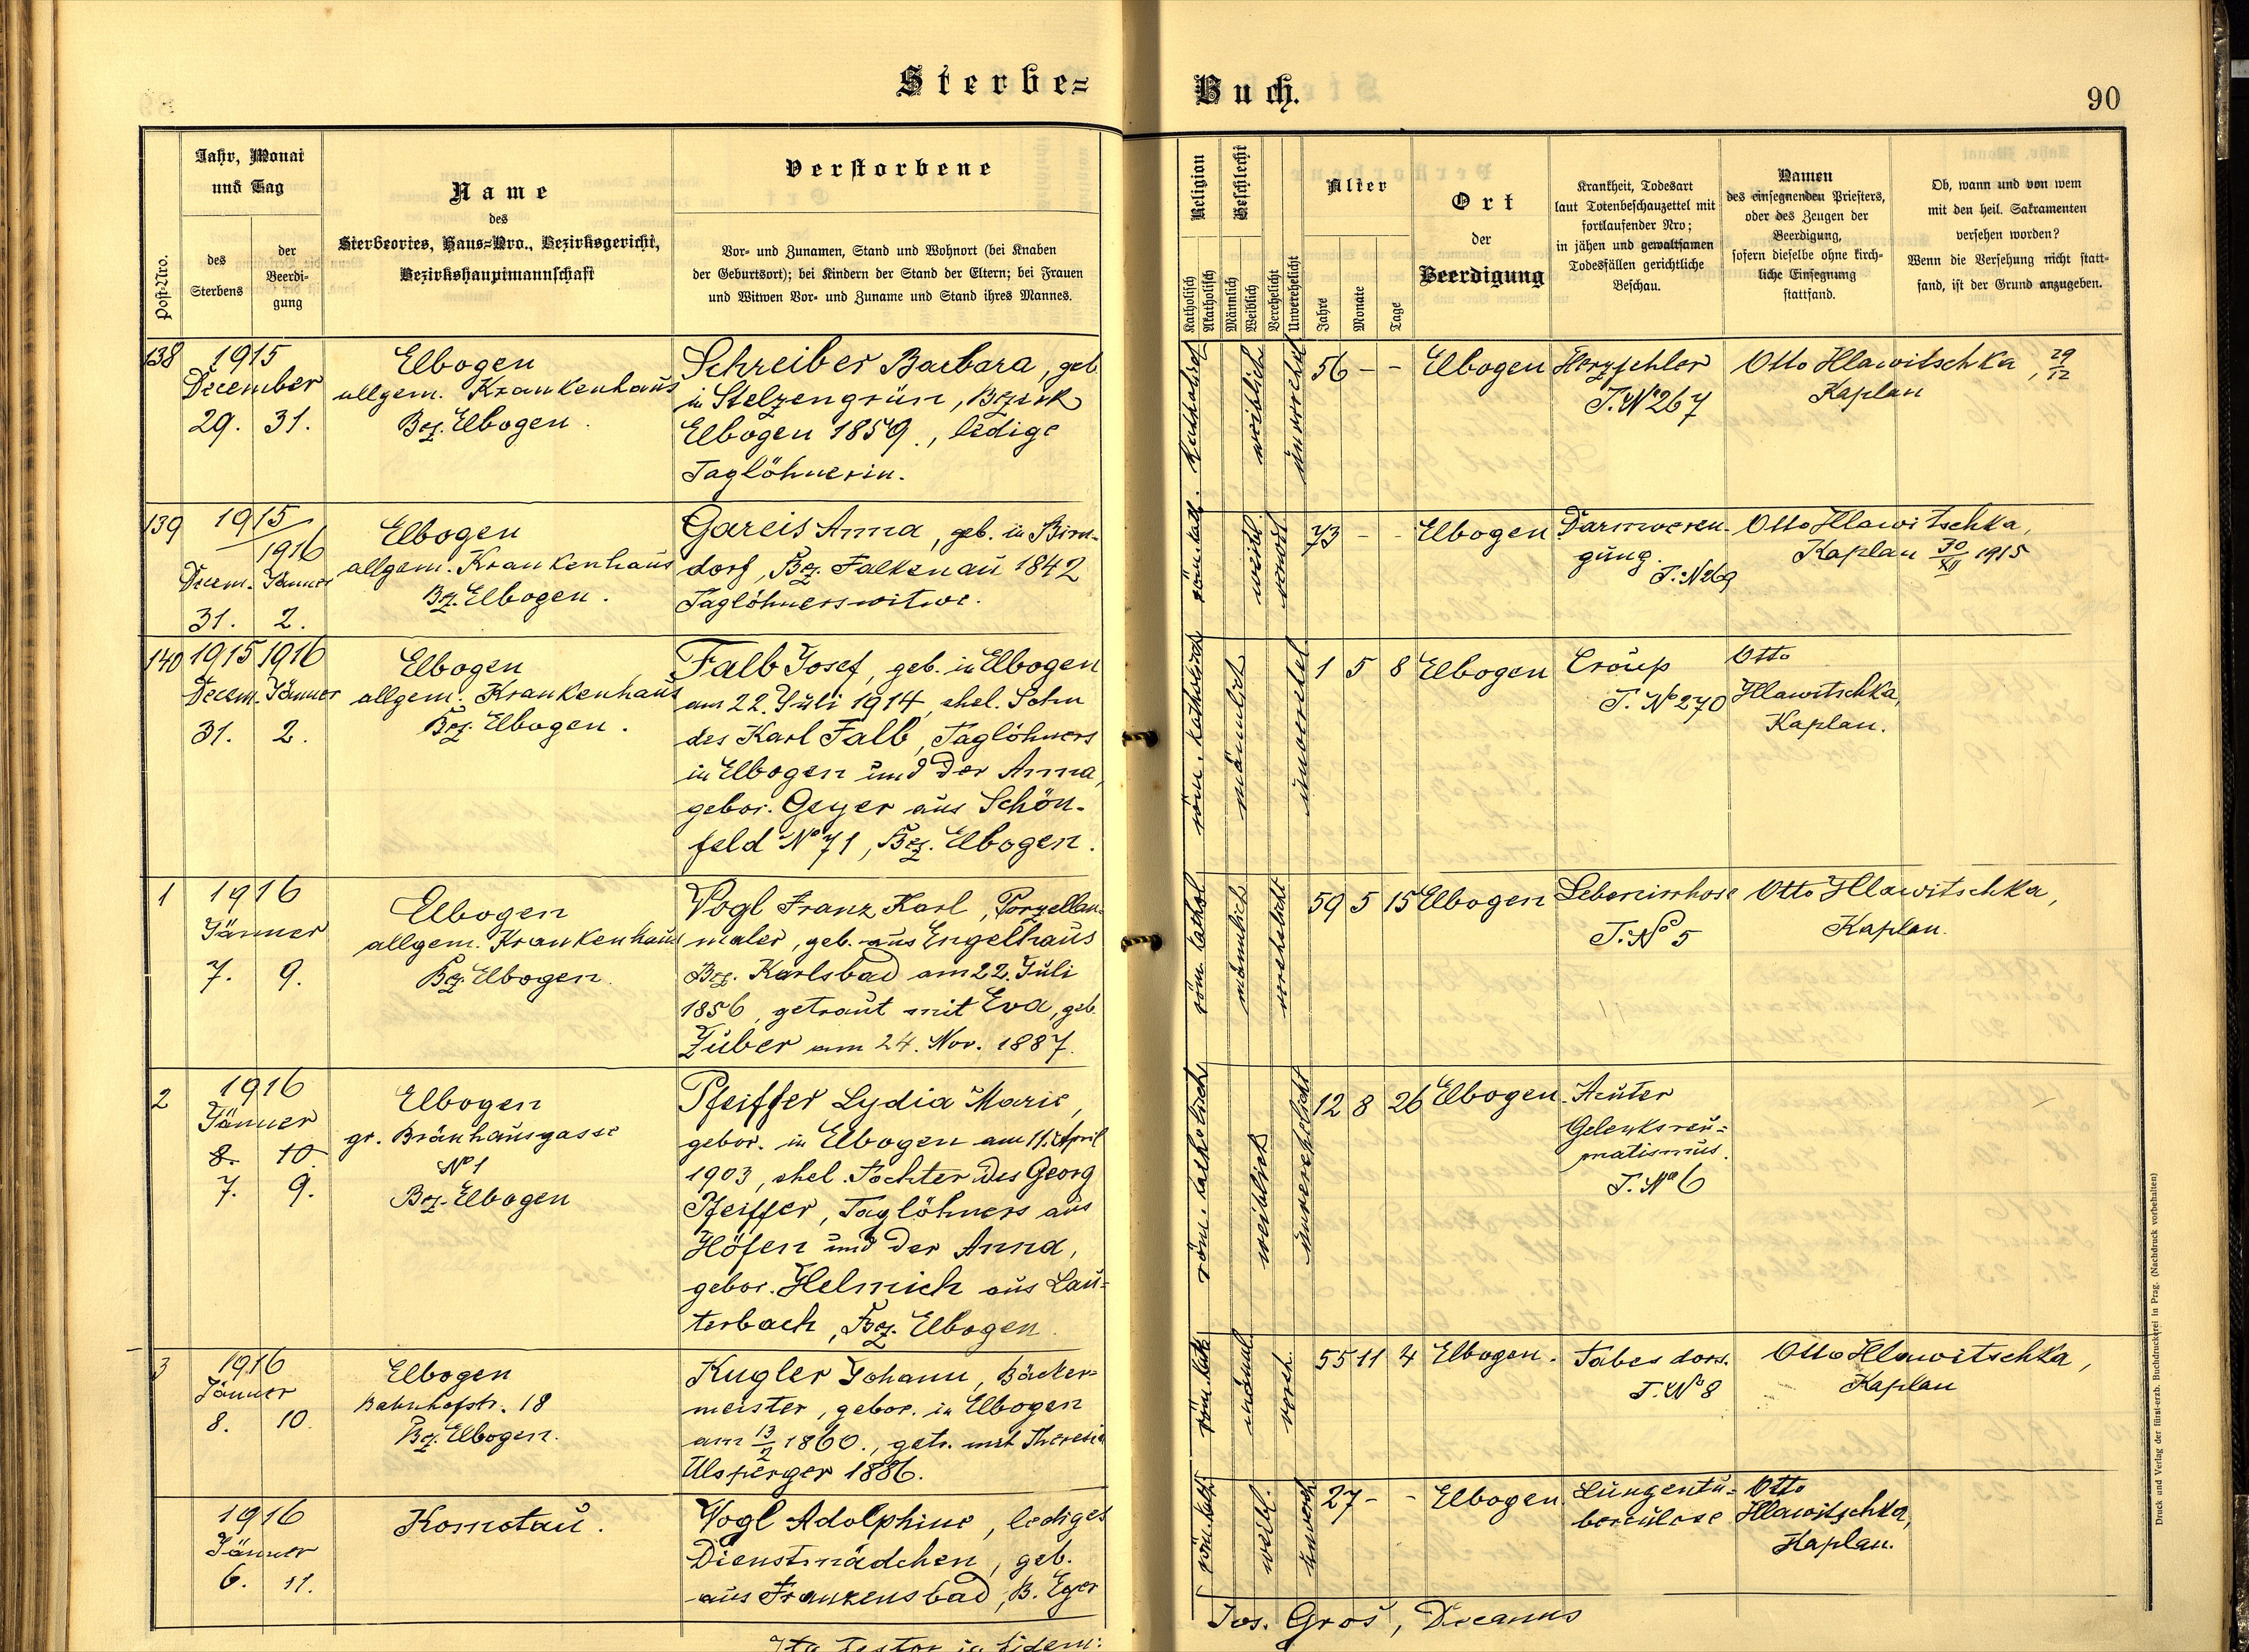 Sterbe-
Buch.
90
Post-Nro.
Jahr, Monat
und Tag
des
Sterbens
der
Beerdi-
gung
Name
des
Sterbeortes, Haus-Nro., Bezirksgericht,
Bezirkshauptmannschaft
Verstorbene
Vor- und Zunamen, Stand und Wohnort (bei Knaben
der Geburtsort); bei Kindern der Stand der Eltern; bei Frauen
und Witwen Vor- und Zuname und Stand ihres Mannes.
Religion
Katholisch
Akatholisch
Geschlecht
Männlich
Weiblich
Verehelicht
Unverehelicht
Alter
Jahre
Monate
Tage
Ort
der
Beerdigung
Krankheit, Todesart
laut Totenbeschauzettel mit
fortlaufender Nro;
in jähen und gewaltsamen
Todesfällen gerichtliche
Beschau.
Namen
des einsegnenden Priesters,
oder des Zeugen der
Beerdigung,
sofern dieselbe ohne kirch-
liche Einsegnung
stattfand.
Ob, wann und von wem
mit den heil. Sakramenten
versehen worden?
Wenn die Versehung nicht statt-
fand, ist der Grund anzugeben.
138
1915
December
29. 31.
Elbogen
allgem. Krankenhaus
Bez. Elbogen.
Schreiber Barbara, geb.
in Stelzengrün, Bezirk
Elbogen 1859., ledige
Taglöhnerin.
weiblich
56 - -
Elbogen
Herzfehler
T. No 267
Otto Hlawitschka, 29/12
Kaplan
139
1915
1916
Decem. Jänner
31. 2.
Elbogen
allgem. Krankenhaus
Bz. Elbogen.
Gareis Anna, geb. in Birn-
dorf, Bez. Falkenau 1842
Taglöhnerswitwe.
röm. kath.
weibl.
73 - -
Elbogen
Darmveren-
gung.
T. No 269
Otto Hlawitschka,
Kaplan 30/XII 1915
140
1915 1916
Decem. Jänner
31. 2.
Elbogen
allgem. Krankenhaus
Bez. Elbogen.
Falb Josef, geb. in Elbogen
am 22. Juli 1914, ehel. Sohn
des Karl Falb, Taglöhners
in Elbogen und der Anna,
gebor. Geyer aus Schön-
feld No 71, Bez. Elbogen.
röm. katholisch
männlich
1 5 8
Elbogen
Croup
T. No 270
Otto
Hlawitschka,
Kaplan.
1
1916
Jänner
7. 9.
Elbogen
allgem. Krankenhaus
Bz. Elbogen.
Vogl Franz Karl, Porzellan-
maler, geb. aus Engelhaus
Bez. Karlsbad am 22. Juli
1856, getraut mit Eva, geb.
Zuber am 24. Nov. 1887.
röm. kathol.
männlich
verehelicht
59 5 15
Elbogen
Lebercirrhose
T. No 5
Otto Hlawitschka,
Kaplan.
2
1916
Jänner
8. 10.
7. 9.
Elbogen
gr. Bräuhausgasse
No 1
Bez. Elbogen
Pfeiffer Lydia Marie,
gebor. in Elbogen am 11. April
1903, ehel. Tochter des Georg
Pfeiffer, Taglöhners aus
Höfen und der Anna,
gebor. Helmich aus Lau-
terbach, Bez. Elbogen.
röm. katholisch
weiblich
unverehelicht
12 8 26
Elbogen
Acuter
Gelenksreu-
matismus.
T. No 6
3
1916
Jänner
8. 10.
Elbogen
Bahnhofstr. 18
Bz. Elbogen.
Kugler Johann, Bäcker-
meister, gebor. in Elbogen
1860., getr. mit Theresia
Ulsperger 1886.
röm. kath.
männl.
vereh.
55 11 4
Elbogen.
Tabes dors.
T. No 8
Otto Hlawitschka,
Kaplan
1916
Jänner
6. 11.
Komotau.
Vogl Adolphine, lediges
Dienstmädchen, geb.
aus Franzensbad, B. Eger
röm. kath.
weibl.
unvereh.
27 - -
Elbogen.
Lungentu-
berculose
Otto
Hlawitschka,
Kaplan.
Ita testor in fidem:
Jos. Groš, Decanus
Druck und Verlag der fürst-erzb. Buchdruckerei in Prag. (Nachdruck vorbehalten)